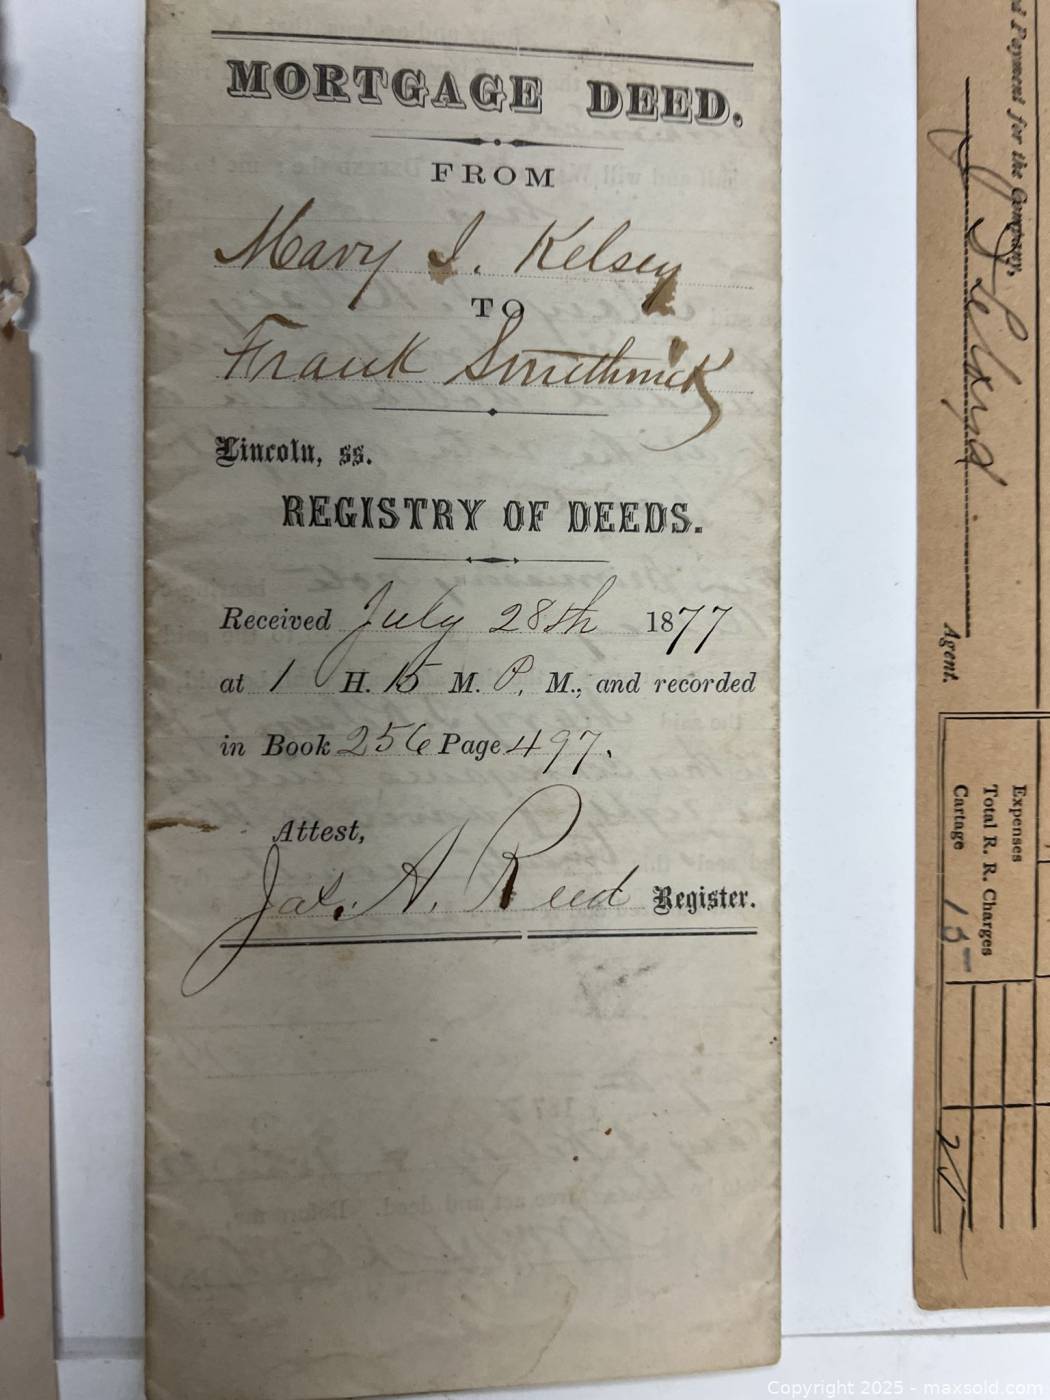 MORTGAGE DEED.
FROM
Mary I. Kelsey
TO
Frank Smithwick
Lincoln, ss.
REGISTRY OF DEEDS.
Received July 28th 1877
at 1 H. 15 M. P. M., and recorded
in Book 256 Page 497.
Attest,
Jas. A. Reed Register.
Payment for the Company,
Agent.
Expenses
Total R. R. Charges
Cartage
Copyright © 2025 - maxsold.com